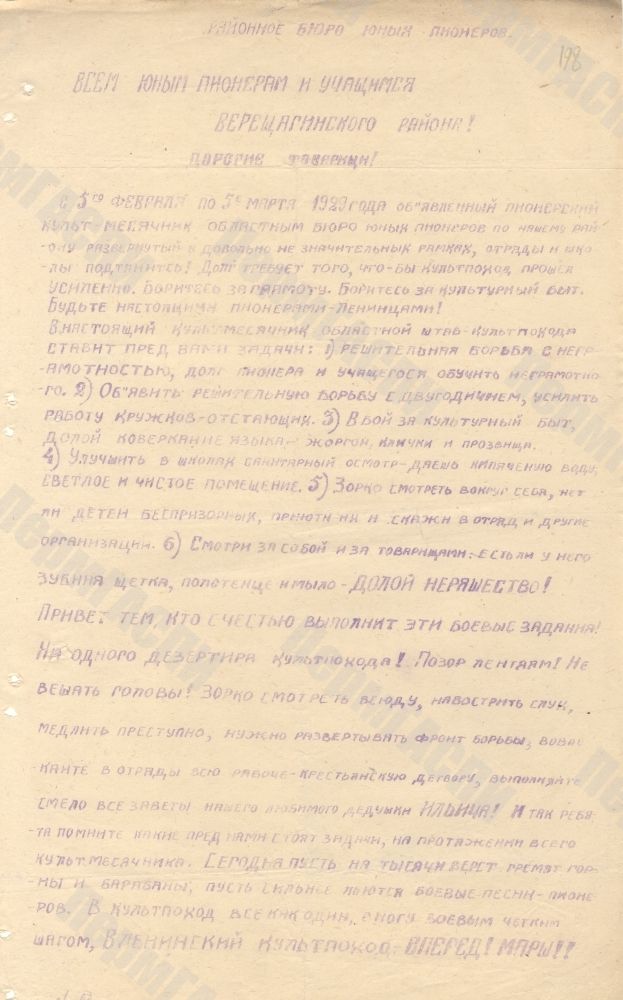 РАЙОННОЕ БЮРО ЮНЫХ ПИОНЕРОВ.
198
ВСЕМ ЮНЫМ ПИОНЕРАМ И УЧАЩИМСЯ
ВЕРЕЩАГИНСКОГО РАЙОНА!
ДОРОГИЕ ТОВАРИЩИ!
С 5го ФЕВРАЛЯ ПО 5е МАРТА 1929 ГОДА ОБ'ЯВЛЕННЫЙ ПИОНЕРСКИЙ
КУЛЬТ МЕСЯЧНИК ОБЛАСТНЫМ БЮРО ЮНЫХ ПИОНЕРОВ ПО НАШЕМУ РАЙ-
ОНУ РАЗВЕРНУТЫЙ В ДОВОЛЬНО НЕ ЗНАЧИТЕЛЬНЫХ РАМКАХ, ОТРЯДЫ И ШКО-
ЛЫ ПОДТЯНИТЕСЬ! ДОЛГ ТРЕБУЕТ ТОГО, ЧТО-БЫ КУЛЬТПОХОД ПРОШЕЛ
УСИЛЕННО. БОРИТЕСЬ ЗА ГРАМОТУ. БОРИТЕСЬ ЗА КУЛЬТУРНЫЙ БЫТ.
БУДЬТЕ НАСТОЯЩИМИ ПИОНЕРАМИ-ЛЕНИНЦАМИ!
В НАСТОЯЩИЙ КУЛЬТМЕСЯЧНИК ОБЛАСТНОЙ ШТАБ-КУЛЬТПОХОДА
СТАВИТ ПРЕД ВАМИ ЗАДАЧИ: 1) РЕШИТЕЛЬНАЯ БОРЬБА С НЕГР-
АМОТНОСТЬЮ, ДОЛГ ПИОНЕРА И УЧАЩЕГОСЯ ОБУЧИТЬ НЕГРАМОТНО-
ГО. 2) ОБ'ЯВИТЬ РЕШИТЕЛЬНУЮ БОРЬБУ С ДВУГОДИЧИЕМ, УСИЛИТЬ
РАБОТУ КРУЖКОВ-ОТСТАЮЩИХ. 3) В БОЙ ЗА КУЛЬТУРНЫЙ БЫТ,
ДОЛОЙ КОВЕРКАНИЕ ЯЗЫКА- ЖОРГОН, КЛИЧКИ И ПРОЗВИЩА.
4) УЛУЧШИТЬ В ШКОЛАХ САНИТАРНЫЙ ОСМОТР-ДАЕШЬ КИПЯЧЕНУЮ ВОДУ,
СВЕТЛОЕ И ЧИСТОЕ ПОМЕЩЕНИЕ. 5) ЗОРКО СМОТРЕТЬ ВОКРУГ СЕБЯ, НЕТ
ЛИ ДЕТЕЙ БЕСПРИЗОРНЫХ, ПРИЮТИ ИХ И СКАЖИ В ОТРЯД И ДРУГИЕ
ОРГАНИЗАЦИИ. 6) СМОТРИ ЗА СОБОЙ И ЗА ТОВАРИЩАМИ: ЕСТЬ ЛИ У НЕГО
ЗУБНАЯ ЩЕТКА, ПОЛОТЕНЦЕ И МЫЛО- ДОЛОЙ НЕРЯШЕСТВО!
ПРИВЕТ ТЕМ, КТО С ЧЕСТЬЮ ВЫПОЛНИТ ЭТИ БОЕВЫЕ ЗАДАНИЯ!
НИ ОДНОГО ДЕЗЕРТИРА КУЛЬТПОХОДА! ПОЗОР ЛЕНТЯЯМ! НЕ
ВЕШАТЬ ГОЛОВЫ! ЗОРКО СМОТРЕТЬ ВСЮДУ, НАВОСТРИТЬ СЛУХ,
МЕДЛИТЬ ПРЕСТУПНО, НУЖНО РАЗВЕРТЫВАТЬ ФРОНТ БОРЬБЫ, ВОВЛЕ
КАЙТЕ В ОТРЯДЫ ВСЮ РАБОЧЕ-КРЕСТЬЯНСКУЮ ДЕТВОРУ, ВЫПОЛНЯЙТЕ
СМЕЛО ВСЕ ЗАВЕТЫ НАШЕГО ЛЮБИМОГО ДЕДУШКИ ИЛЬИЧА! И ТАК РЕБЯ-
ТА ПОМНИТЕ КАКИЕ ПРЕД НАМИ СТОЯТ ЗАДАЧИ, НА ПРОТЯЖЕНИИ ВСЕГО
КУЛЬТМЕСЯЧНИКА. СЕГОДНЯ ПУСТЬ НА ТЫСЯЧИ ВЕРСТ ГРЕМЯТ ГОР-
НЫ И БАРАБАНЫ, ПУСТЬ СИЛЬНЕЕ ЛЬЮТСЯ БОЕВЫЕ ПЕСНИ-ПИОНЕ-
РОВ. В КУЛЬТПОХОД ВСЕ КАК ОДИН, В НОГУ БОЕВЫМ ЧЕТКИМ
ШАГОМ, В ЛЕНИНСКИЙ КУЛЬТПОХОД ВПЕРЕД! МАРШ!!
ПермГАСПИ